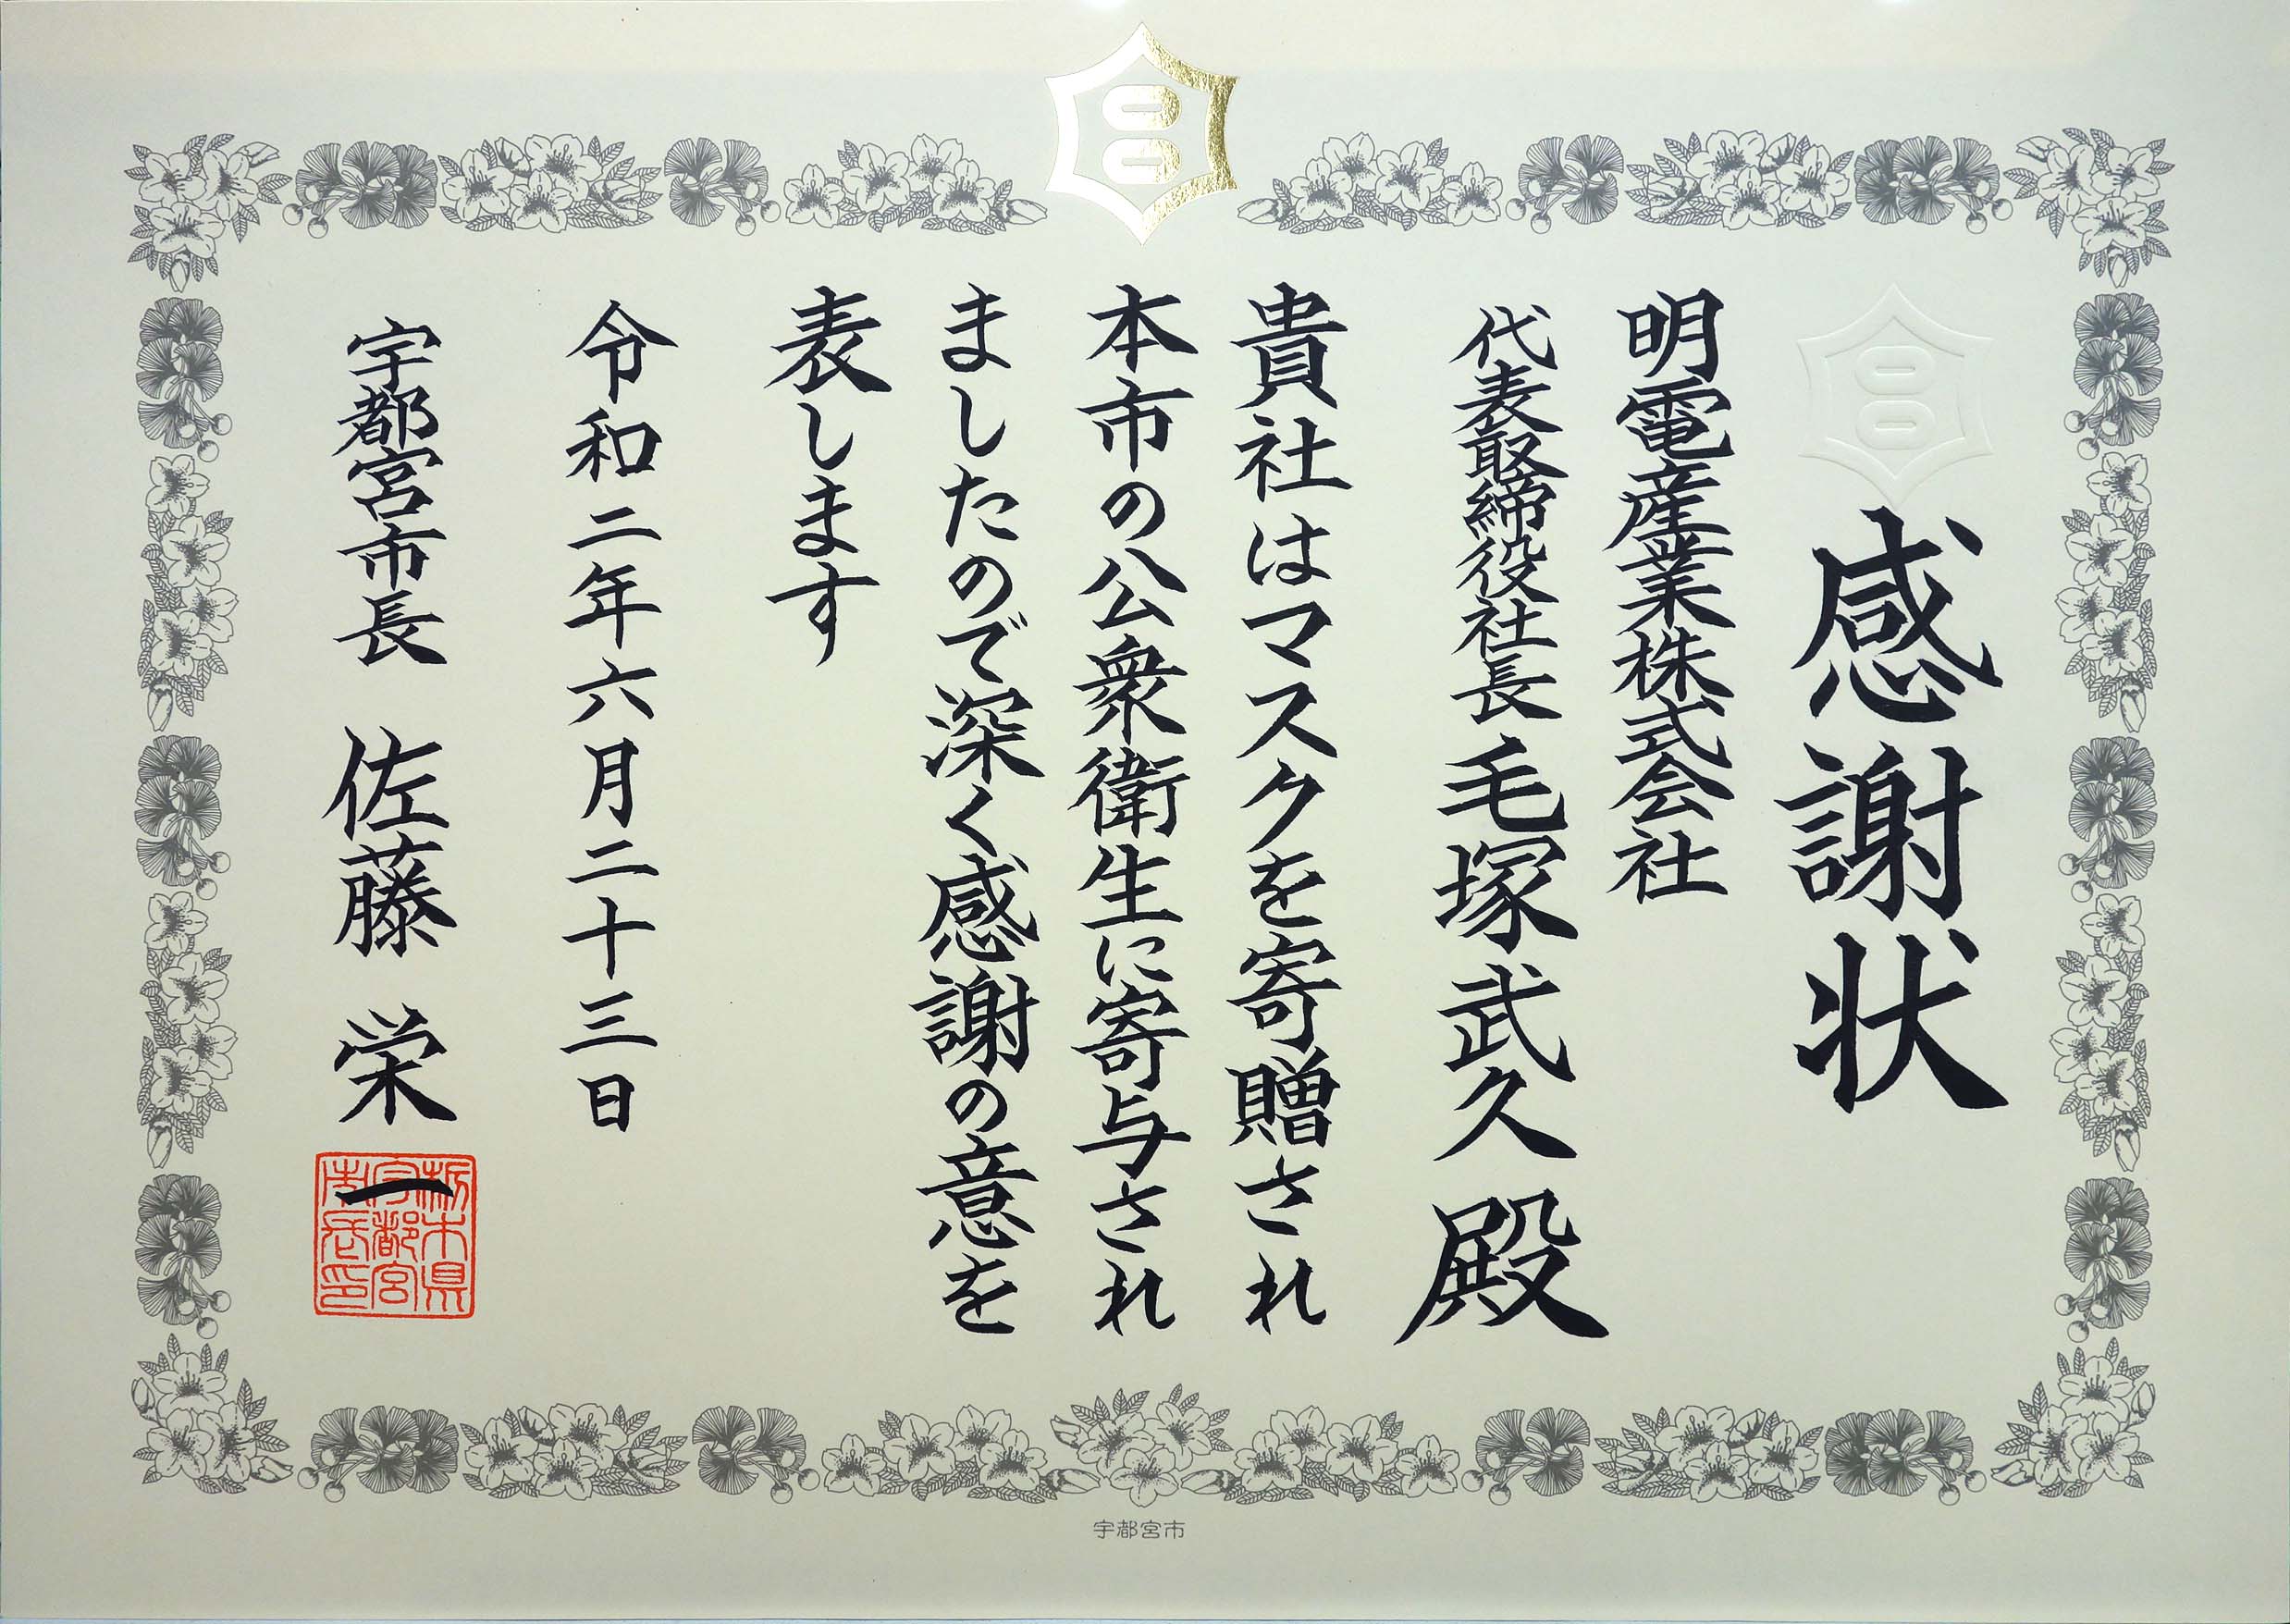 感謝状
明電産業株式会社
代表取締役社長 毛塚武久 殿
貴社はマスクを寄贈され
本市の公衆衛生に寄与され
ましたので深く感謝の意を
表します
令和二年六月二十三日
宇都宮市長 佐藤 栄一
栃木県
宇都宮
市長印
宇都宮市